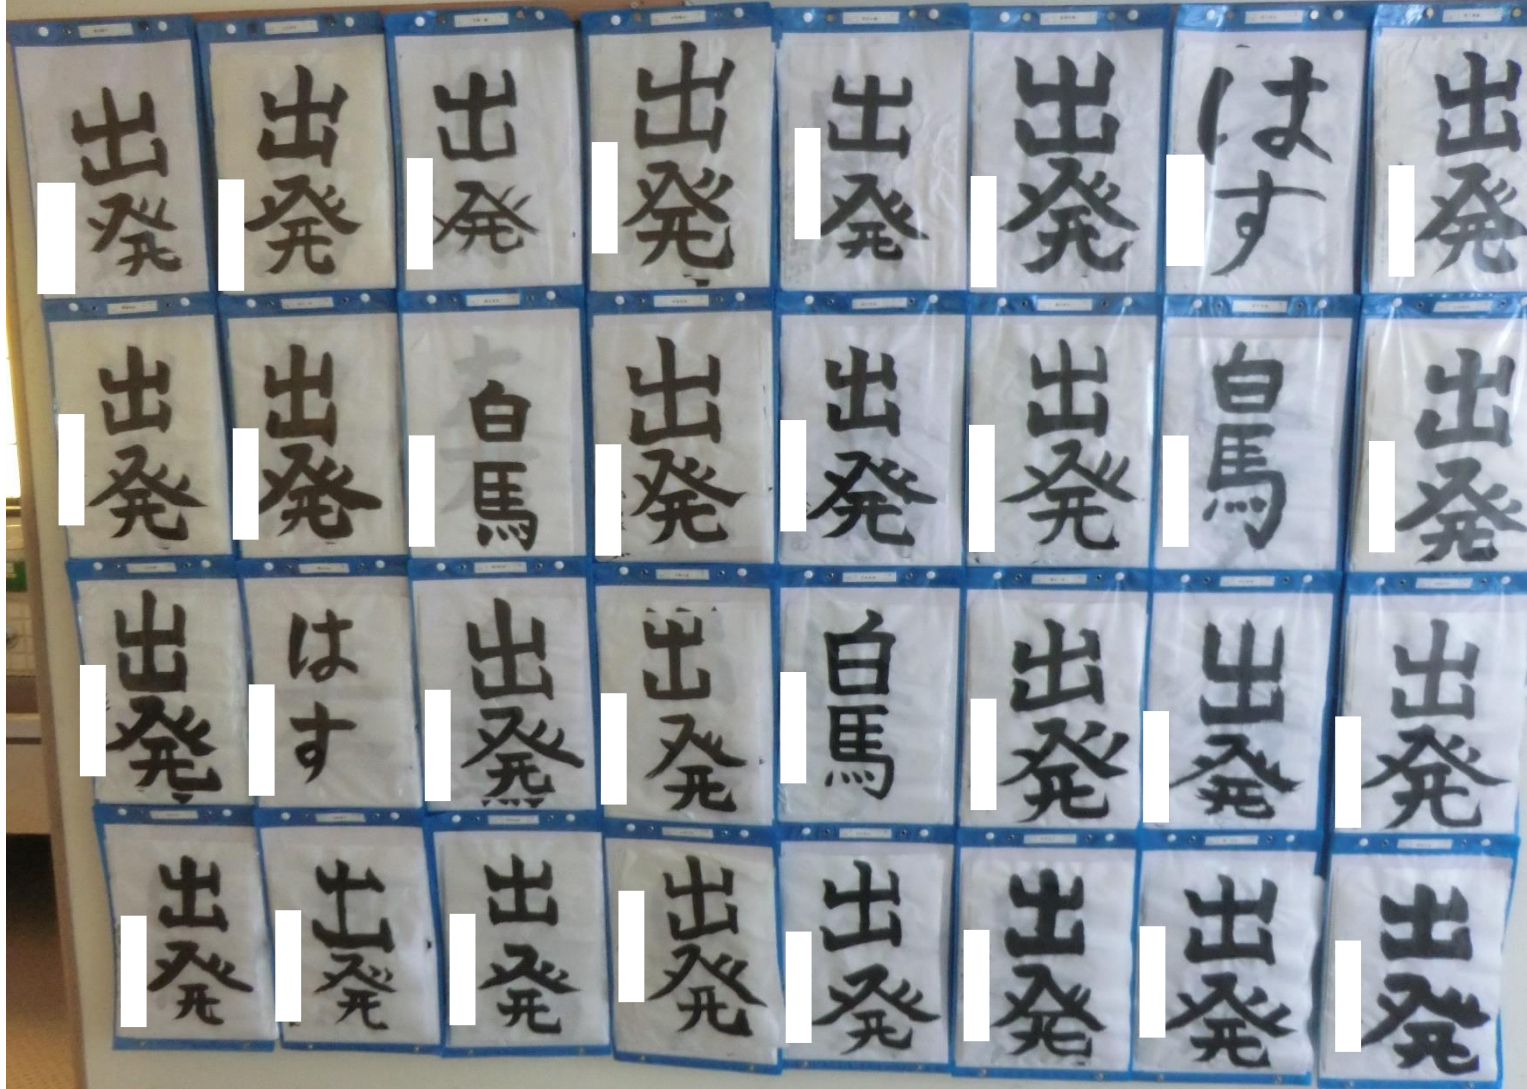 出発
出発
出発
出発
出発
出発
はす
出発
出発
出発
白馬
出発
出発
出発
白馬
出発
出発
はす
出発
出発
白馬
出発
出発
出発
出発
出発
出発
出発
出発
出発
出発
出発